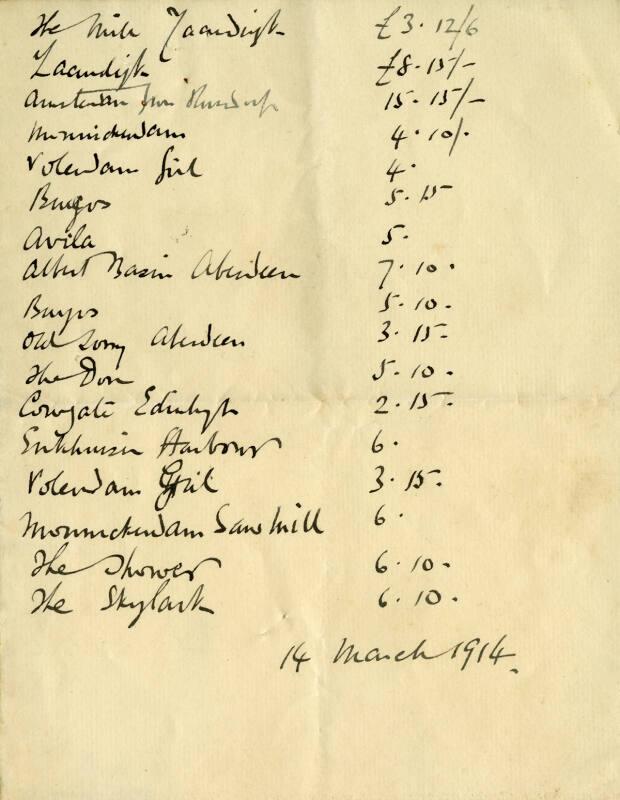 The Mill Zaandijk £3.12/6
Zaandijk £8.15/-
Amsterdam from 15.15/-
Monnickendam 4.10/.
Volendam Girl 4.
Burgos 5.15
Avila 5.
Albert Basin Aberdeen 7.10.
Burgos 5.10.
Old Aberdeen 3.15.
The Don 5.10.
Cowgate Edinbgh 2.15.
Enkhuisen Harbour 6.
Volendam Girl 3.15.
Monnickendam Saw Mill 6.
The Shower 6.10.
The Skylark 6.10.
14 March 1914.